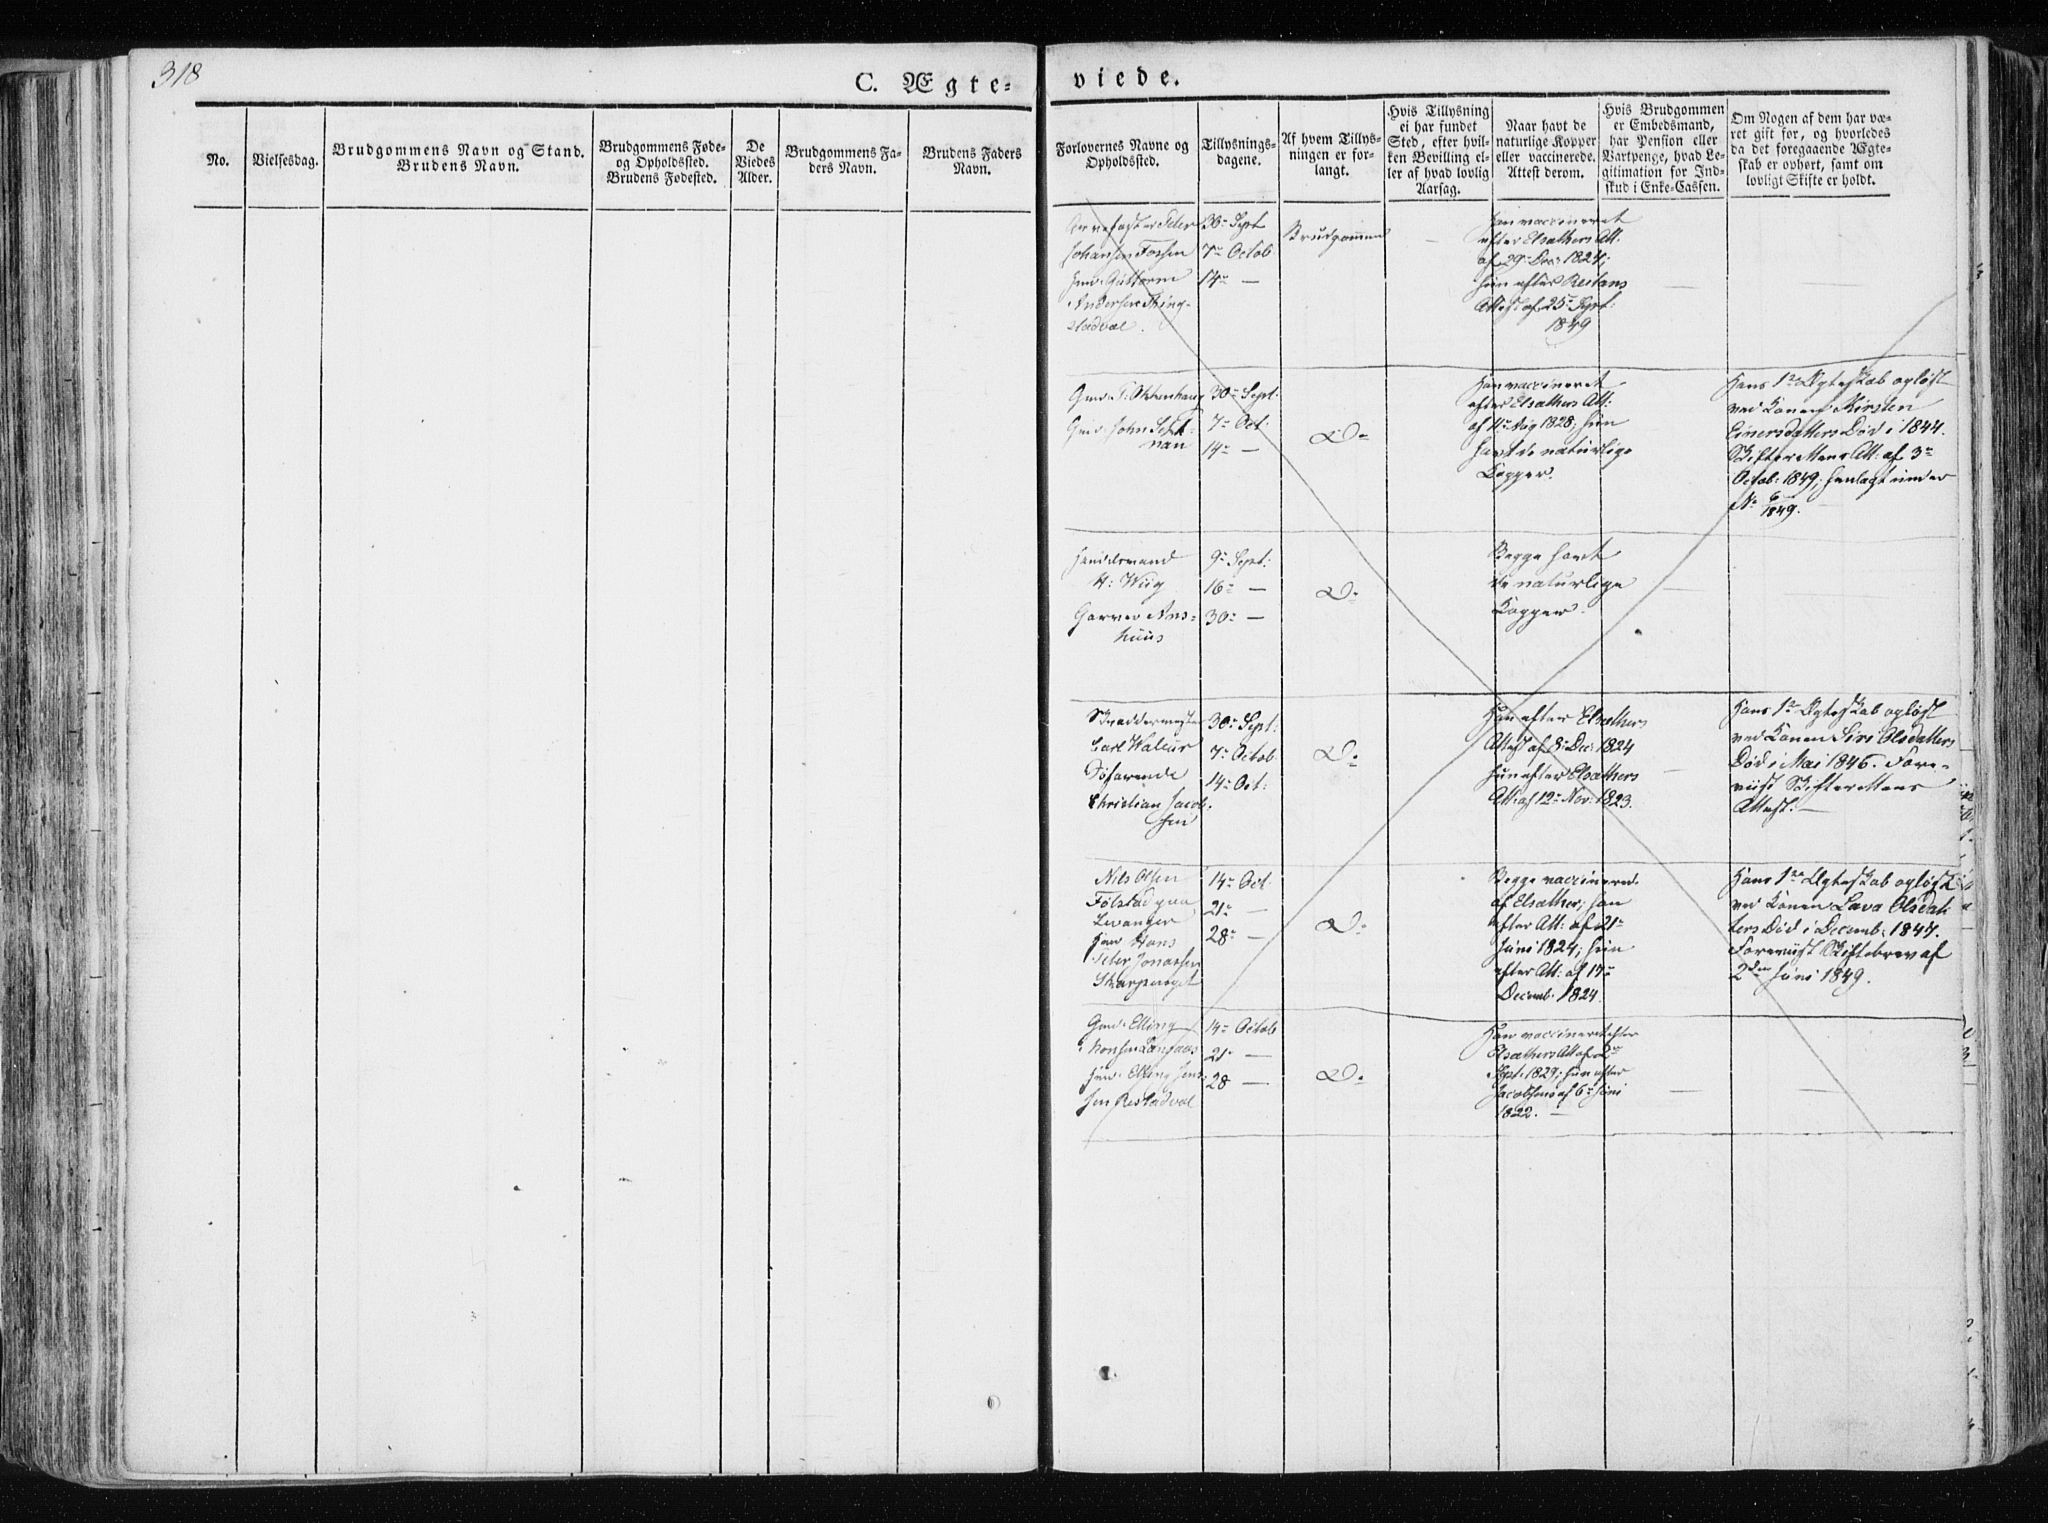 318
C. Ægte-
viede.
No.
Vielsesdag.
Brudgommens Navn og Stand.
Brudens Navn.
Brudgommens Føde-
og Opholdssted.
Brudens Fødested.
De
Viedes
Alder.
Brudgommens Fa-
ders Navn.
Brudens Faders
Navn.
Forlovernes Navne og
Opholdssted.
Tillysnings-
dagene.
Af hvem Tillys-
ningen er for-
langt.
Hvis Tillysning
ei har fundet
Sted, efter hvil-
ken Bevilling el-
ler af hvad lovlig
Aarsag.
Naar havt de
naturlige Kopper
eller vaccinerede.
Attest derom.
Hvis Brudgommen
er Embedsmand,
har Pension eller
Vartpenge, hvad Le-
gitimation for Ind-
skud i Enke-Cassen.
Om Nogen af dem har væ-
ret gift før, og hvorledes
da det foregaaende Ægte-
skab er ophørt, samt om
lovligt Skifte er holdt.
Peter
Johansen Fossen
Guttorm
Andersen Ring-
stadval.
30- Sept
7- Octob
14- —
Brudgommen
Han vaccineret
efter Elsæthers Att.
af 29- Dec: 1824;
hun efter Reitans
Attest af 25- Sept:
1849
30- Sept:
7- Oct:
14- —
Do
Han vaccineret
efter Elsæthers Att:
af 11- Aug 1828; hun
havt de naturlige
Kopper.
Hans 1ste Ægteskab opløst
ved Konen Kirsten
Einersdatters Død i 1844.
Skifterettens Att: af 3-
Octob: 1849, henlagt under
No 6
1849.
Handelsmand
H: Wiig
Garver Aus-
huus
9- Sept:
16- —
30- —
Do
Begge havt
de naturlige
Kopper.
Skræddermester
Carl Waleur
Søfarende
Christian Jacob-
sen
30- Sept:
7- Octob
14- Oct:
Do
Han efter Elsæthers
Attest af 8- Dec: 1824
hun efter Elsæthers
Att: af 12- Nov: 1823.
Hans 1ste Ægteskab opløst
ved Konen Siri Olsdatters
Død i Mai 1846. Fore-
viist Skifterettens
Attest. —
Nils Olsen
Følstad paa
Levanger
Hans
Peter Jonassen
14- Oct.
21- —
28- —
Do
Begge vaccinered.
af Elsæther; han
efter Att: af 21-
Juni 1824; hun
efter Att: af 17-
Decemb. 1824.
Hans 1ste Ægteskab opløst
ved Konen Lava Olsdat-
ters Død i Decemb: 1847.
Foreviist Skiftebrev af
2den Juni 1849.
Elling
Elling Jen-
sen Restadval
14- Octob
21- —
28 —
Do
Han vaccineret efter
Elsæthers Att af 2-
Sept. 1829; hun efter
Jacobsens af 6- Juni
1822. —